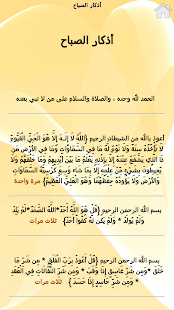 أذكار الصباح
أذكار الصباح
الحمد لله وحده ، والصلاة والسلام على من لا نبي بعده
أَعُوذُ بِاللهِ مِنْ الشَّيْطَانِ الرَّجِيمِ {اللّهُ لاَ إِلَـهَ إِلاَّ هُوَ الْحَيُّ الْقَيُّومُ
لاَ تَأْخُذُهُ سِنَةٌ وَلاَ نَوْمٌ لَّهُ مَا فِي السَّمَاوَاتِ وَمَا فِي الأَرْضِ مَن
ذَا الَّذِي يَشْفَعُ عِنْدَهُ إِلاَّ بِإِذْنِهِ يَعْلَمُ مَا بَيْنَ أَيْدِيهِمْ وَمَا خَلْفَهُمْ وَلاَ
يُحِيطُونَ بِشَيْءٍ مِّنْ عِلْمِهِ إِلاَّ بِمَا شَاء وَسِعَ كُرْسِيُّهُ السَّمَاوَاتِ
وَالأَرْضَ وَلاَ يَؤُودُهُ حِفْظُهُمَا وَهُوَ الْعَلِيُّ الْعَظِيمُ} مرة واحدة
بسم الله الرحمن الرحيم {قُلْ هُوَ اللَّهُ أَحَدٌ*اللَّهُ الصَّمَدُ*لَمْ يَلِدْ
وَلَمْ يُولَدْ * وَلَمْ يَكُن لَّهُ كُفُواً أَحَدٌ} ثلاث مرات
بسم الله الرحمن الرحيم {قُلْ أَعُوذُ بِرَبِّ الْفَلَقِ * مِن شَرِّ مَا
خَلَقَ *وَمِن شَرِّ غَاسِقٍ إِذَا وَقَبَ * وَمِن شَرِّ النَّفَّاثَاتِ فِي الْعُقَدِ
* وَمِن شَرِّ حَاسِدٍ إِذَا حَسَدَ } ثلاث مرات